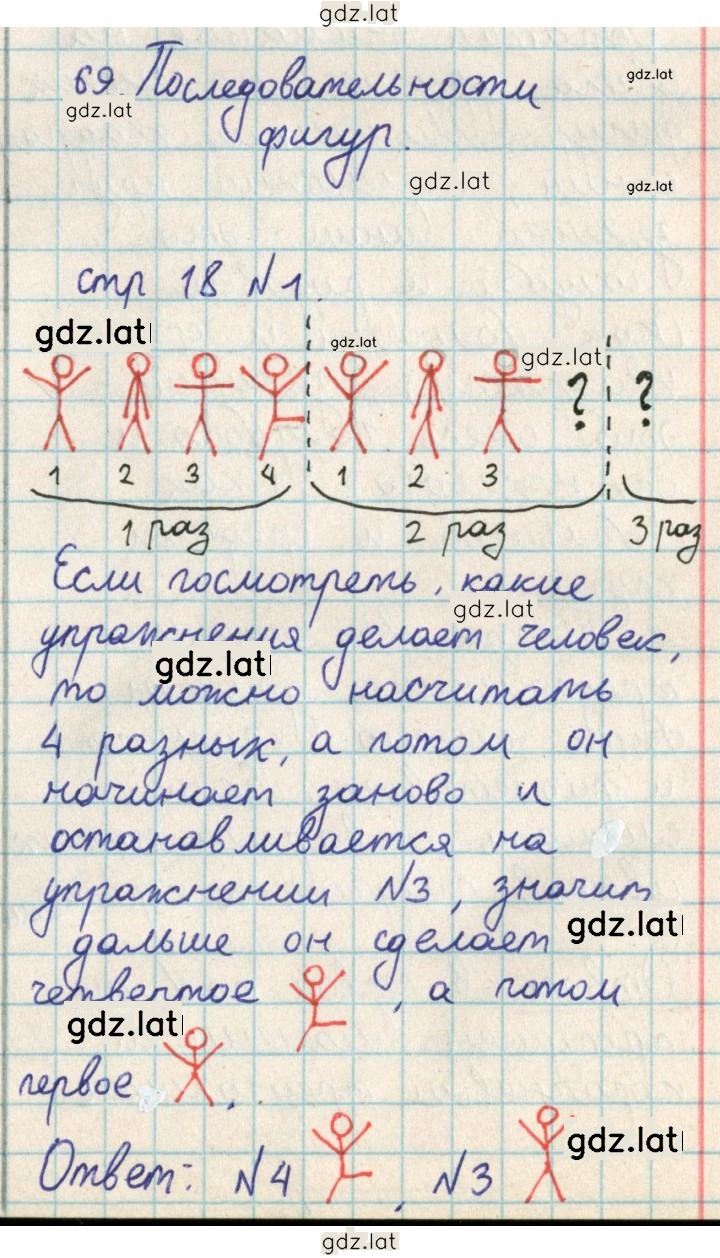 gdz.lat
69 Последовательности
gdz.lat
gdz.lat
фигур.
gdz.lat
gdz.lat
стр 18 №1.
gdz.lat
gdz.lat
gdz.lat
? ?
1 2 3 4 1 2 3
1 раз 2 раз 3 раз
Если посмотреть, какие
gdz.lat
упражнения делает человек,
gdz.lat
то можно насчитать
4 разных, а потом он
начинает заново и
останавливается на
упражнении №3, значит
gdz.lat
дальше он сделает
четвертое , а потом
gdz.lat
первое .
gdz.lat
Ответ: №4 , №3
gdz.lat